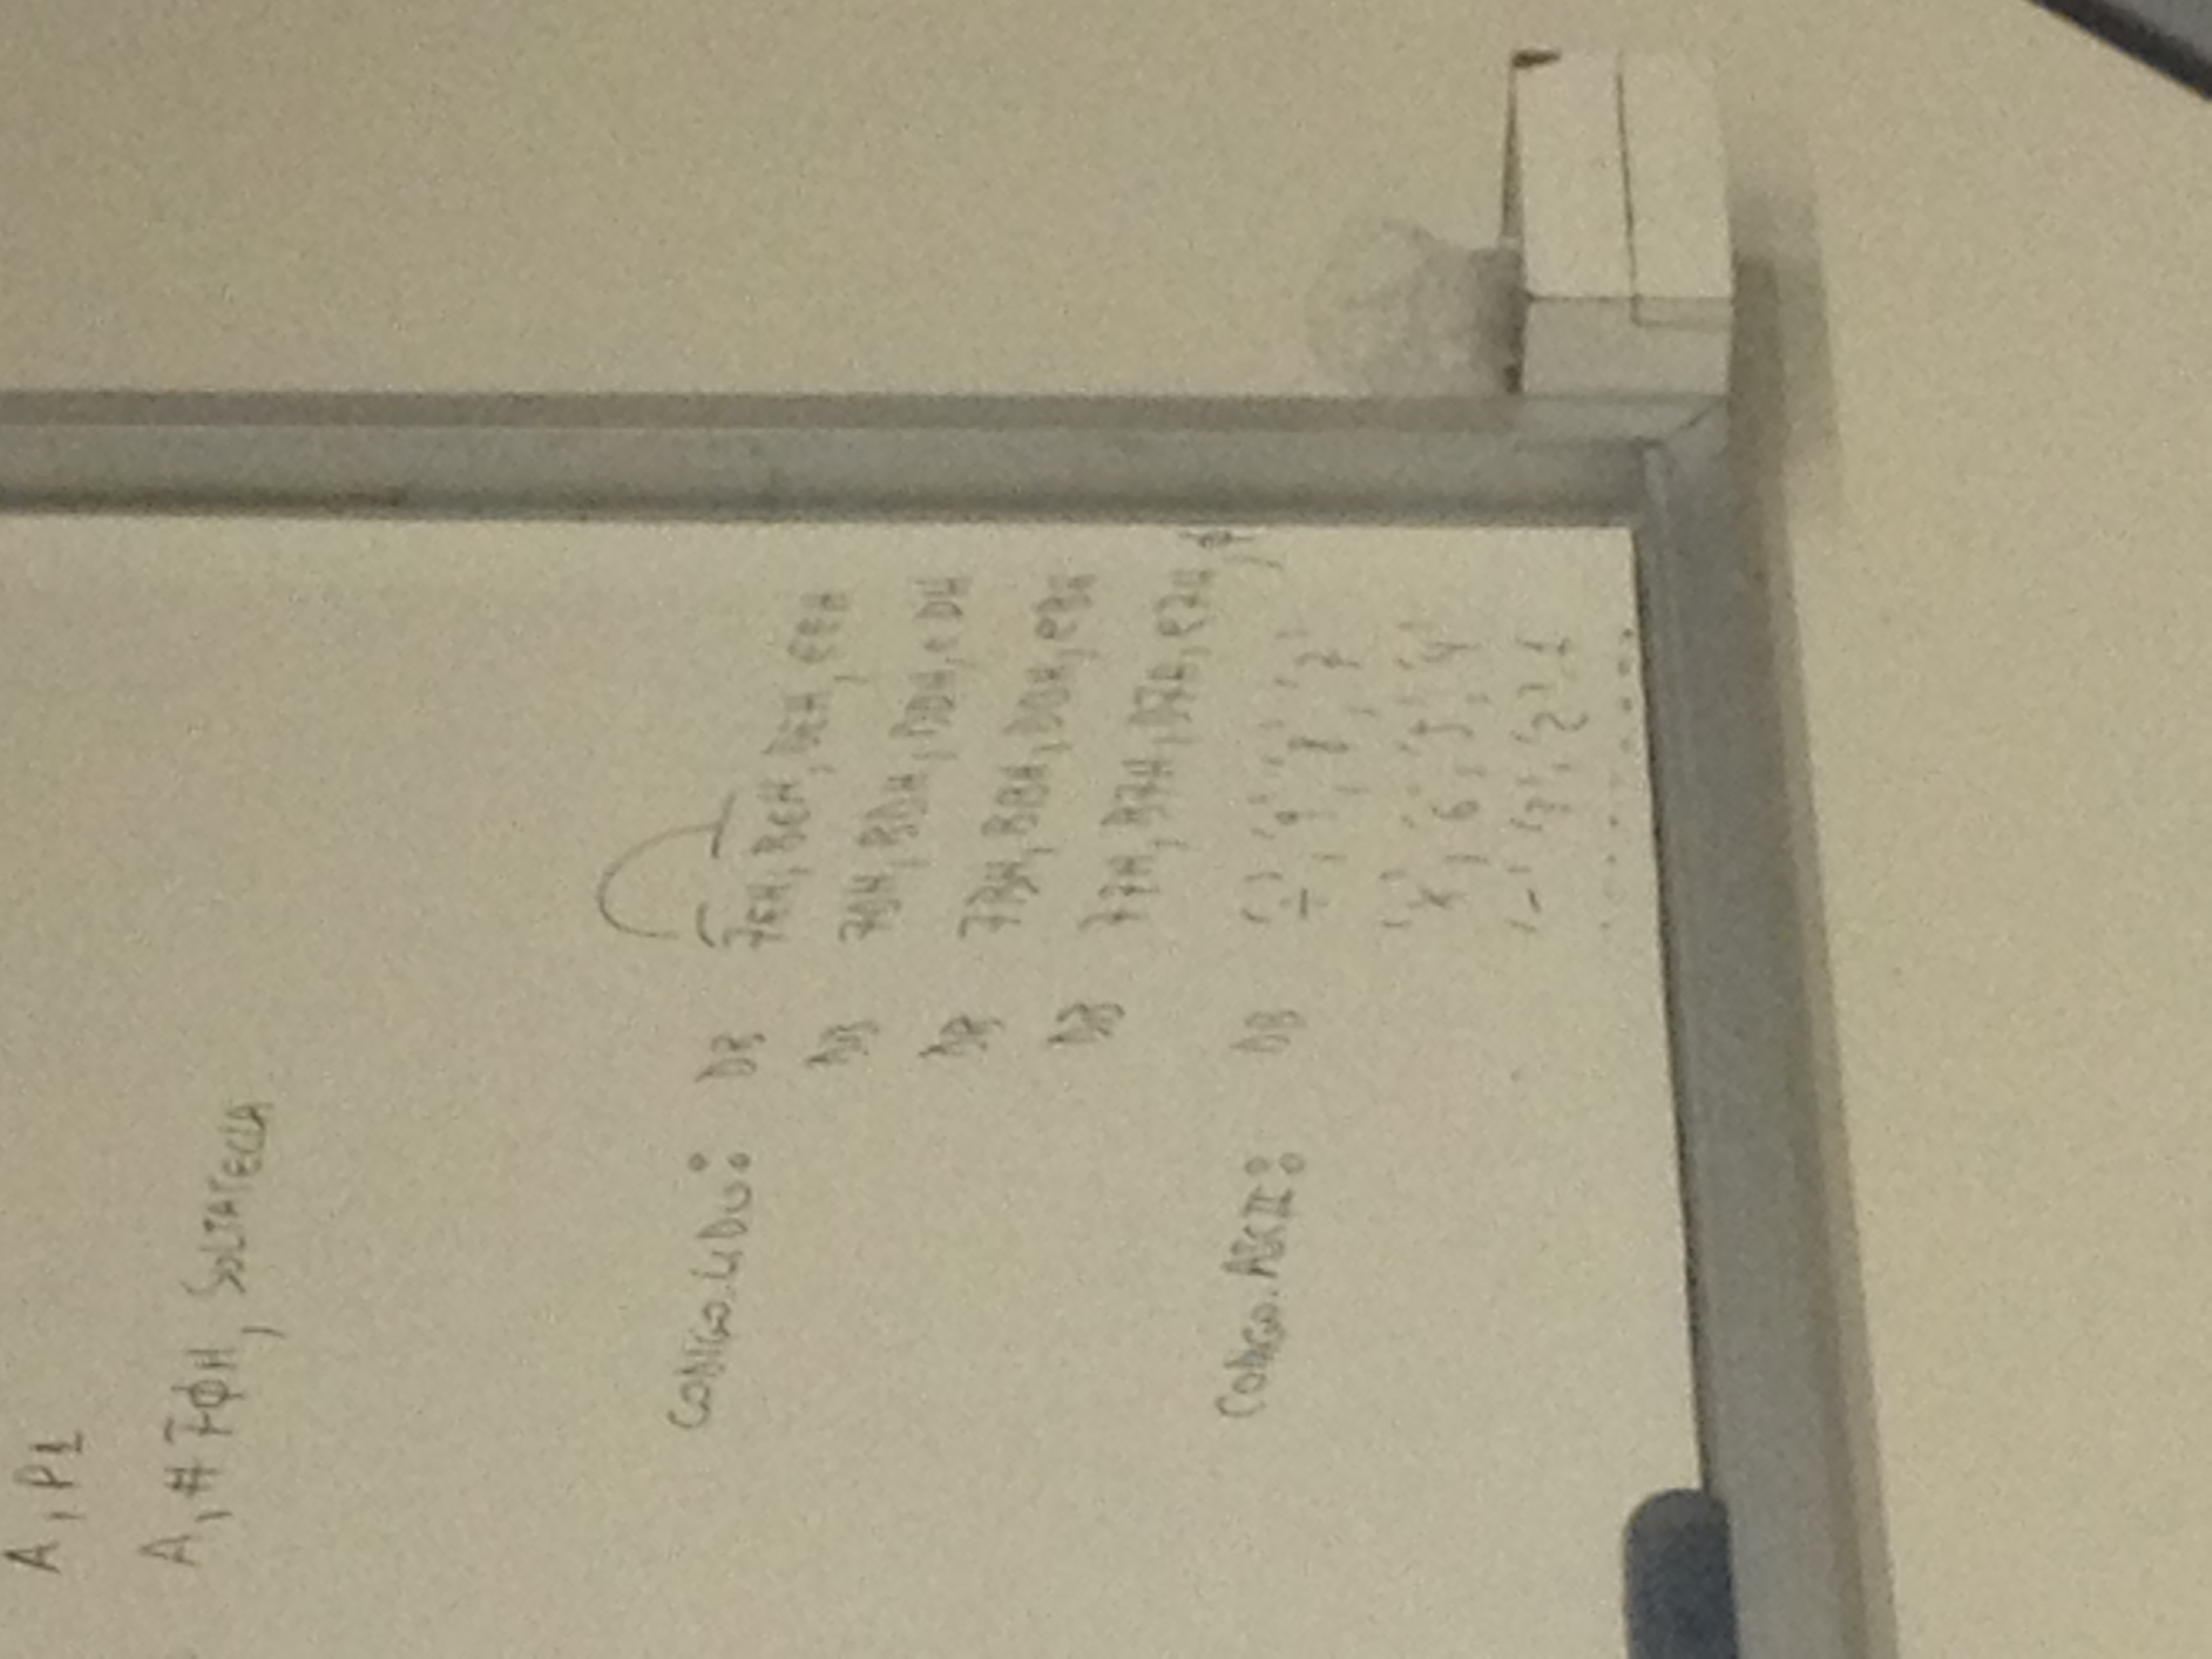 A, P1
A, # 7φH, SOLTATECLA
CODIGO.LIDO: DB 7EH, BEH, DEH, EEH
DB 7DH, BDH, DDH, EDH
DB 7BH, BBH, DBH, EBH
DB 77H, B7H, D7H, E7H, φ
CODIGO.ASCII: DB '÷', '9', '8', '7'
'x', '6', '5', '4'
'-' '3', '2', 1